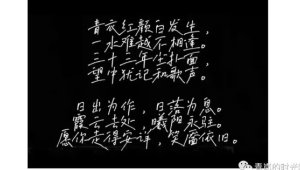 青衣红颜白发生，
一水难越不相逢。
三十二年尘扑面，
望中犹记和歌声。
日出为作，日落为息。
霞云去处，曦阳永驻。
愿你走得安详，笑靥依旧。